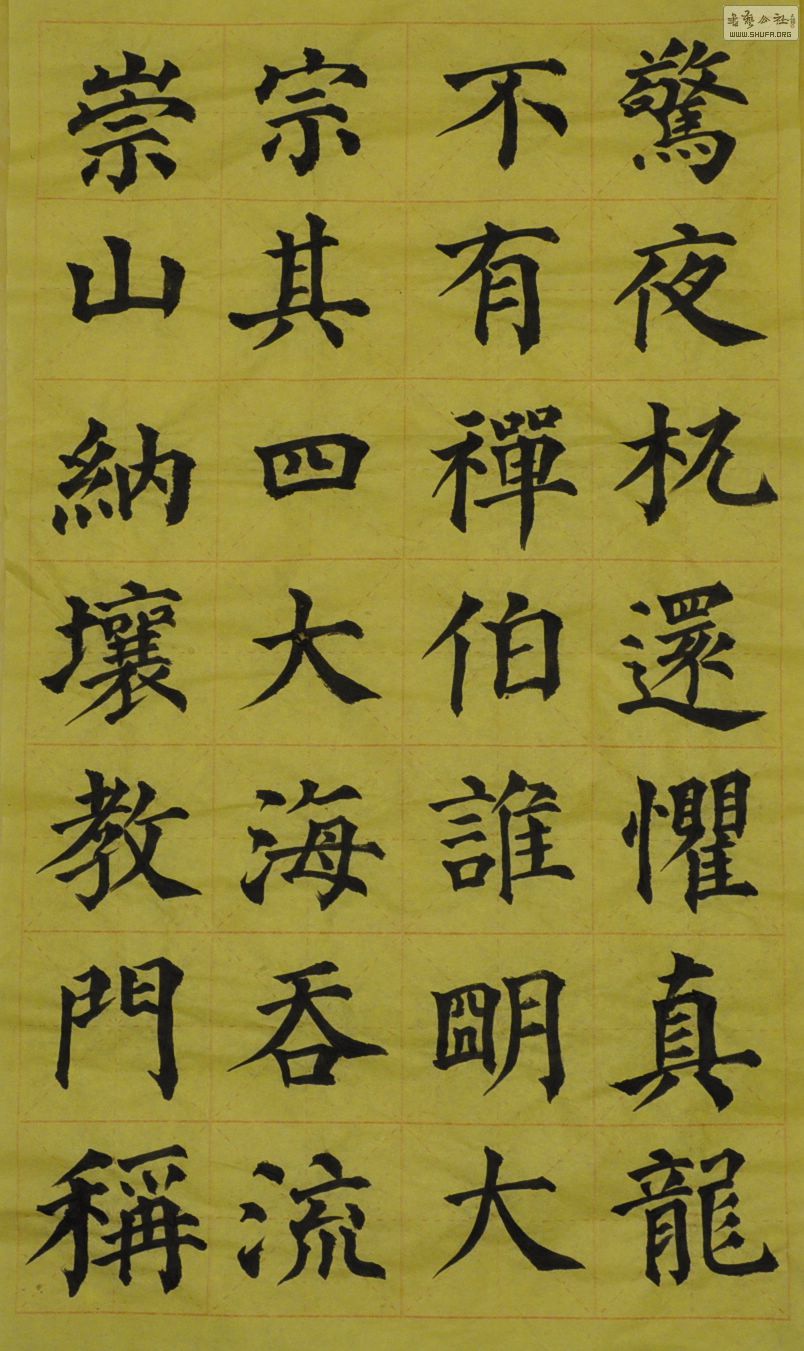 驚夜杌還懼真龍
不有禪伯誰朙大
宗其四大海吞流
崇山納壤教門稱
WWW.SHUFA.ORG